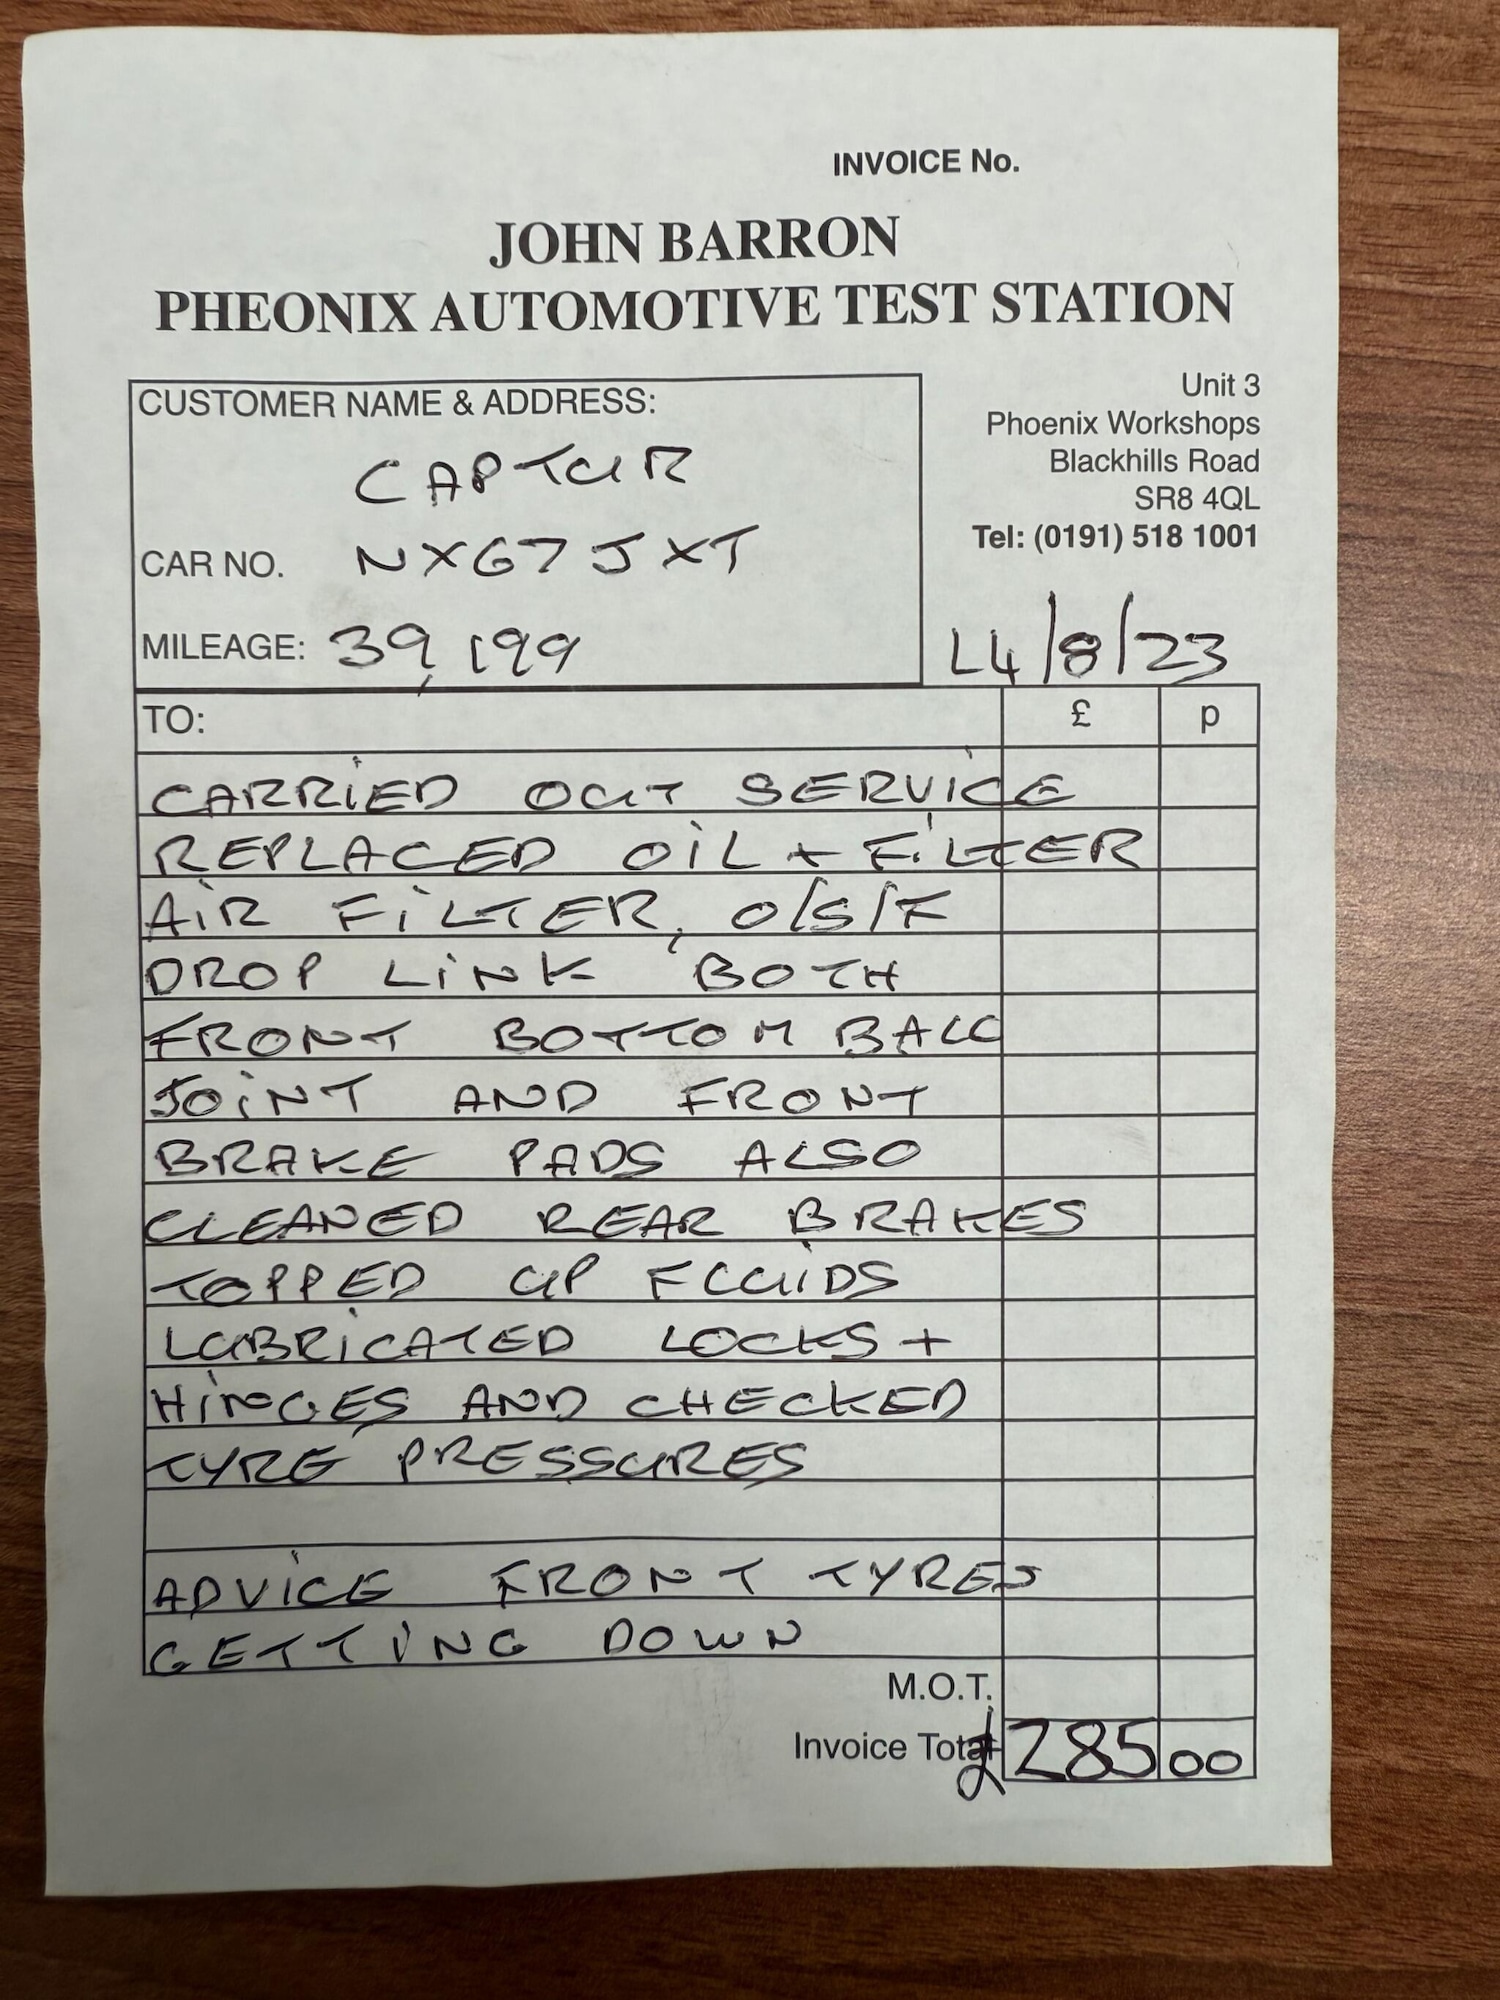 INVOICE No.
JOHN BARRON
PHEONIX AUTOMOTIVE TEST STATION
CUSTOMER NAME & ADDRESS:
CAPTUR
CAR NO. NX67 JXT
MILEAGE: 39,199
Unit 3
Phoenix Workshops
Blackhills Road
SR8 4QL
Tel: (0191) 518 1001
14/8/23
TO: £ p
CARRIED OUT SERVICE
REPLACED OIL + FILTER
AIR FILTER, O/S/F
DROP LINK BOTH
FRONT BOTTOM BALL
JOINT AND FRONT
BRAKE PADS ALSO
CLEANED REAR BRAKES
TOPPED UP FLUIDS
LUBRICATED LOCKS +
HINGES AND CHECKED
TYRE PRESSURES
ADVICE FRONT TYRES
GETTING DOWN
M.O.T.
Invoice Total £285 00